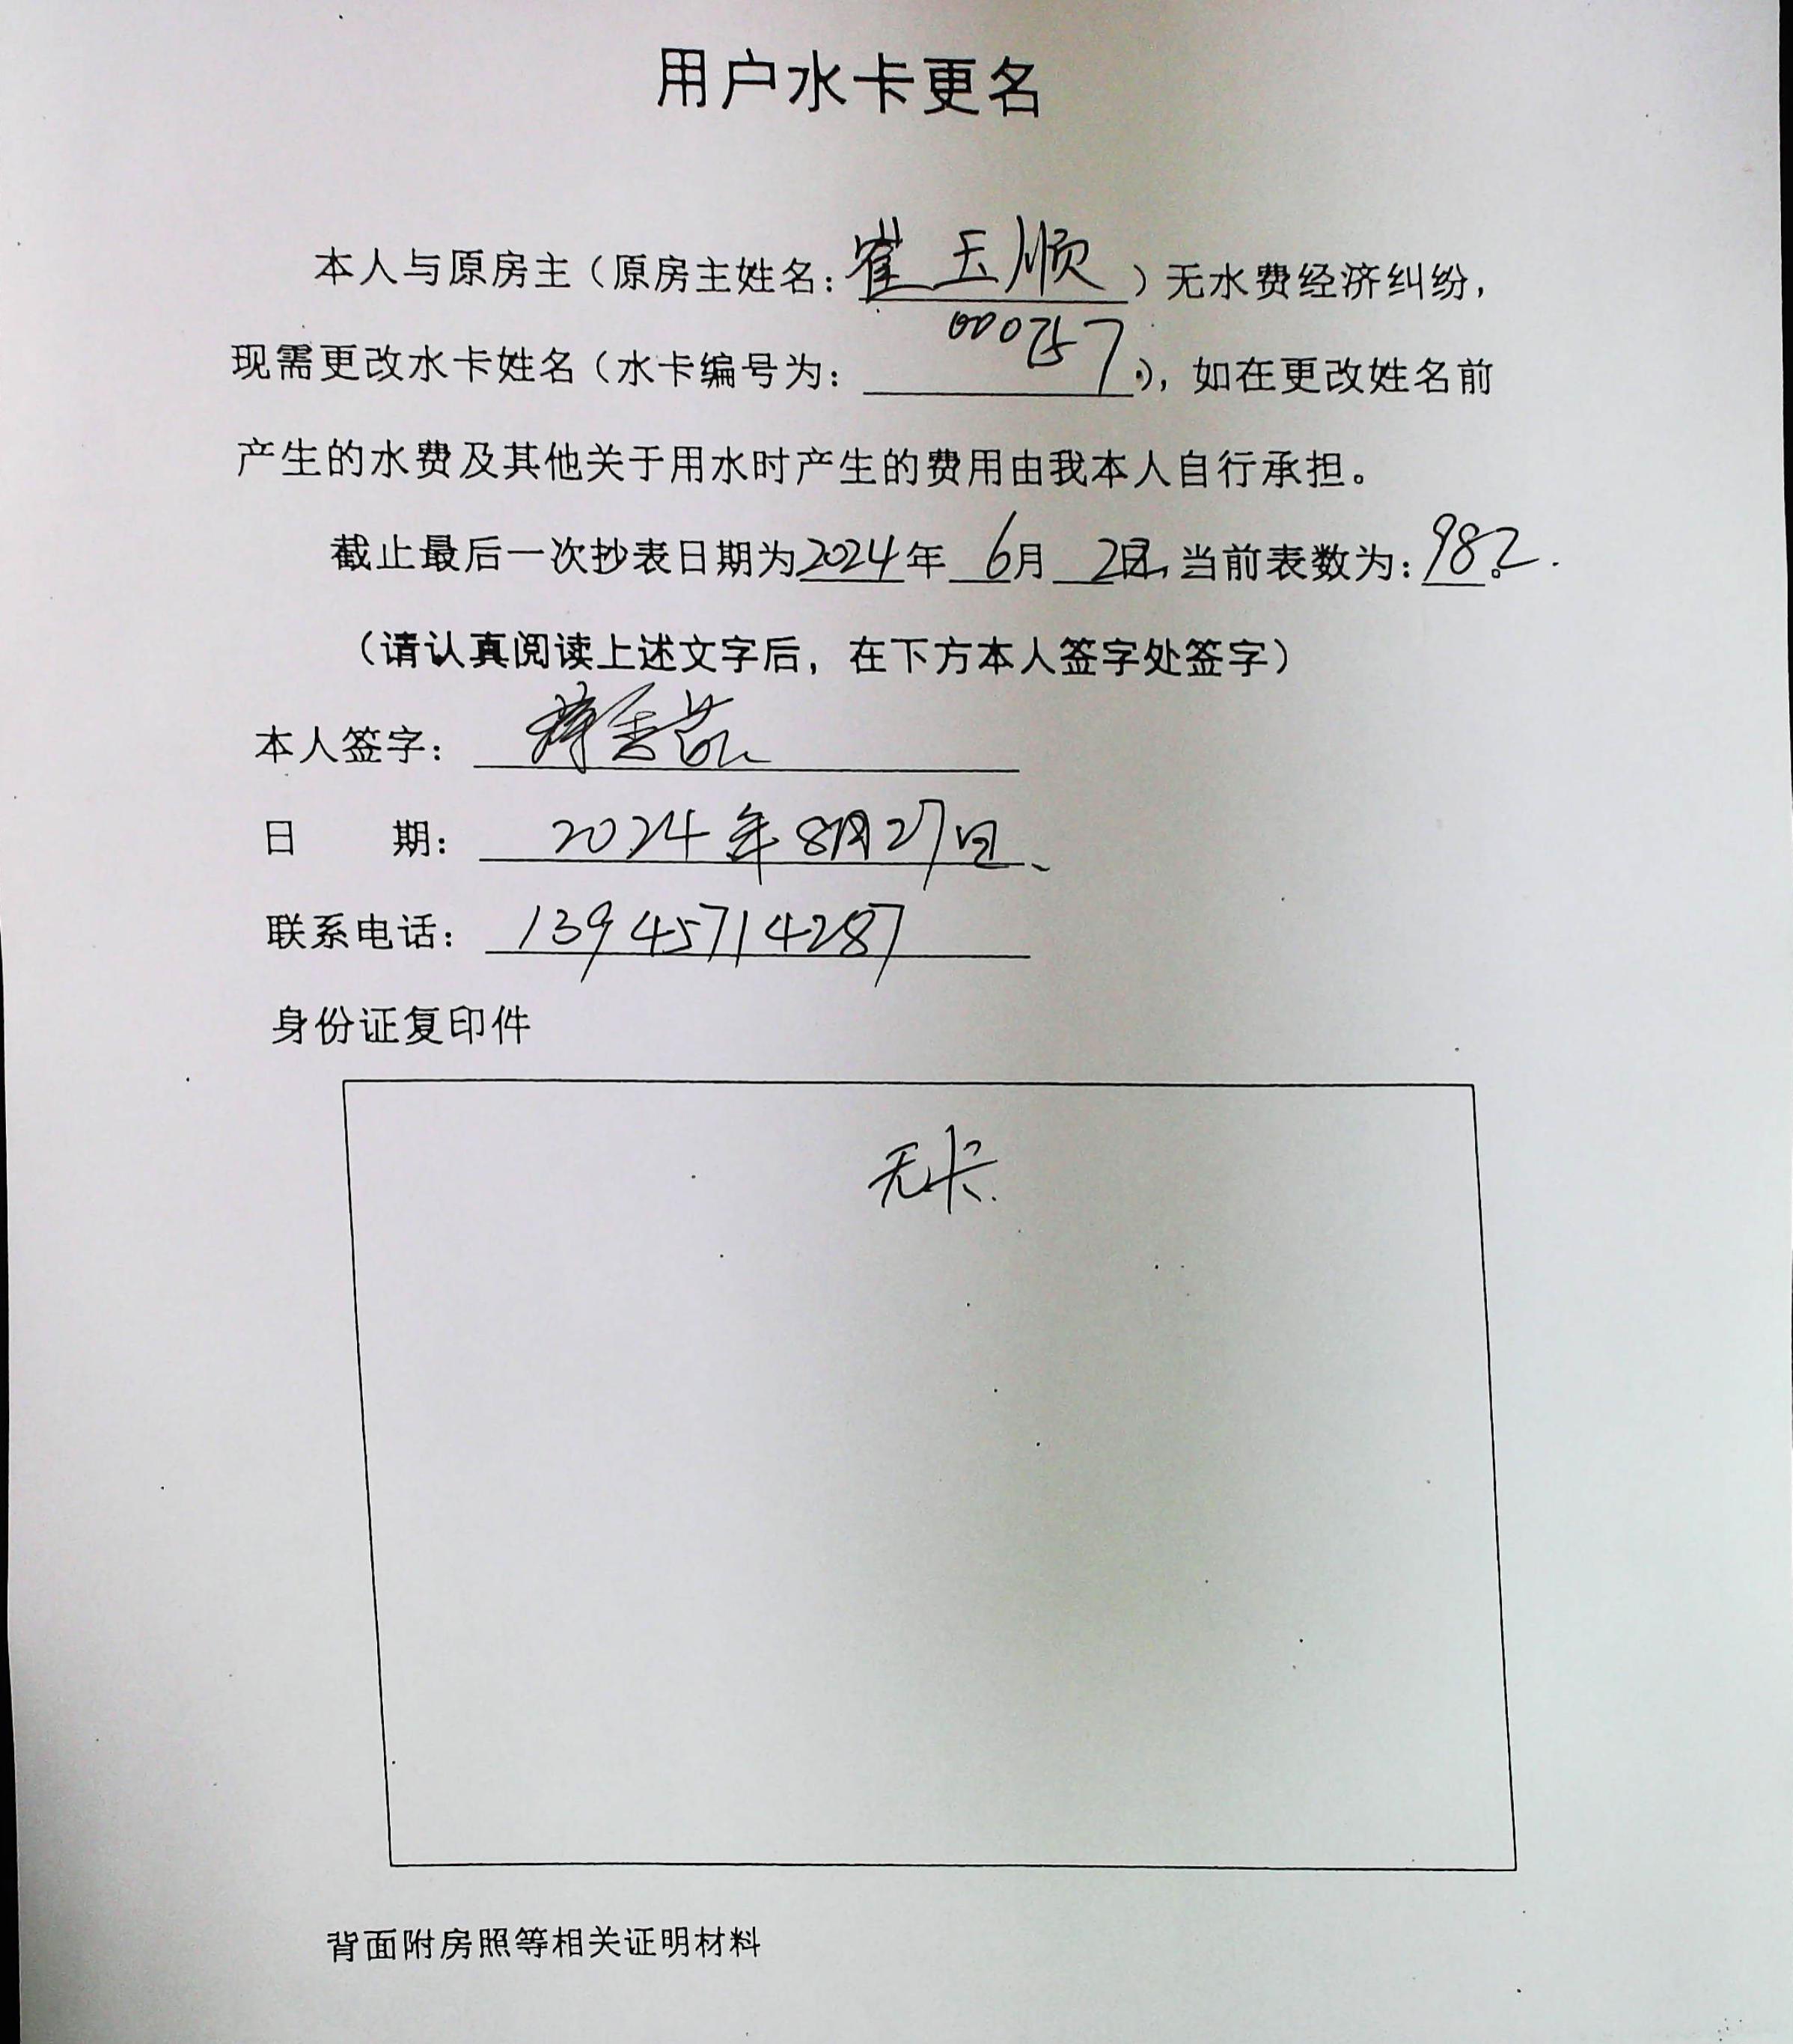 用户水卡更名
本人与原房主（原房主姓名：崔玉顺）无水费经济纠纷，
现需更改水卡姓名（水卡编号为：000757），如在更改姓名前
产生的水费及其他关于用水时产生的费用由我本人自行承担。
截止最后一次抄表日期为2024年6月2日，当前表数为：982。
（请认真阅读上述文字后，在下方本人签字处签字）
本人签字：
日 期：2024年8月27日、
联系电话：13945714287
身份证复印件
无卡.
背面附房照等相关证明材料